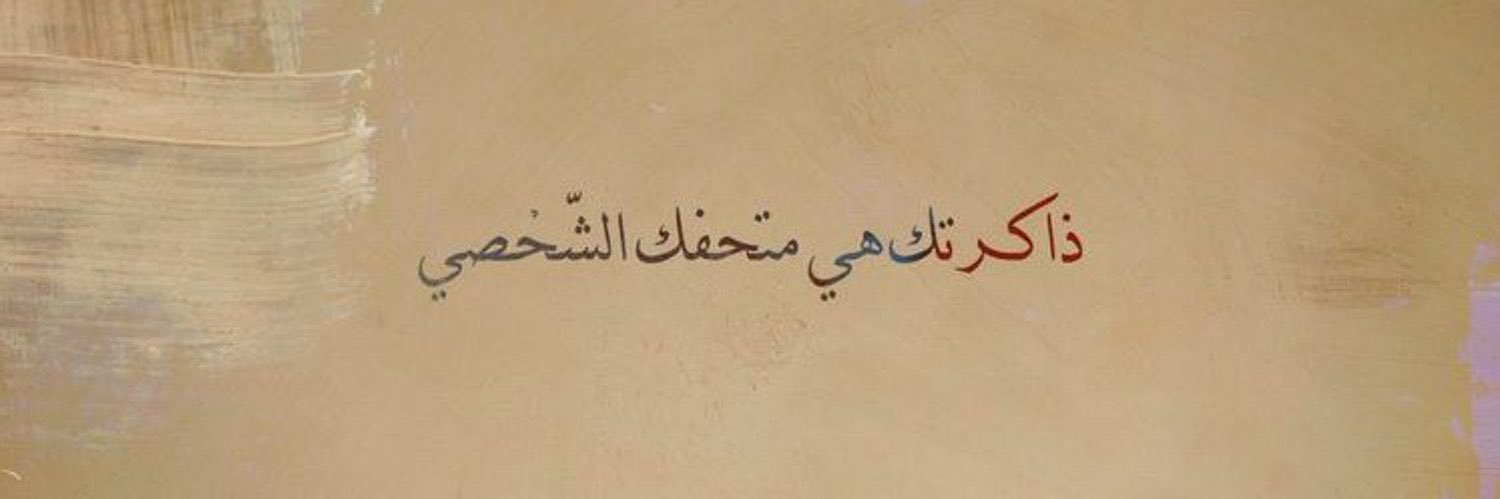 ذاكرتك هي متحفك الشّخصي